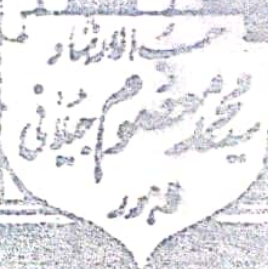 مسند الارشاد
سید محمد معصوم جیلانی